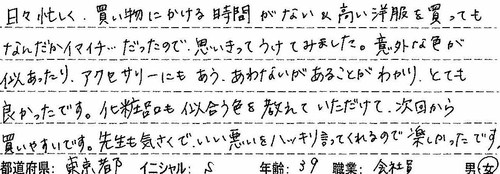 日々忙しく、買い物にかける時間がない&高い洋服を買っても
なんだかイマイチ…だったので、思いきってうけてみました。意外な色が
似あったり、アクセサリーにもあう、あわないがあることがわかり、とても
良かったです。化粧品も似合う色を教えていただけて、次回から
買いやすいです。先生も気さくで、いい悪いをハッキリ言ってくれるので楽しかったです。
都道府県：東京都 イニシャル：S 年齢：39 職業：会社員 男・女